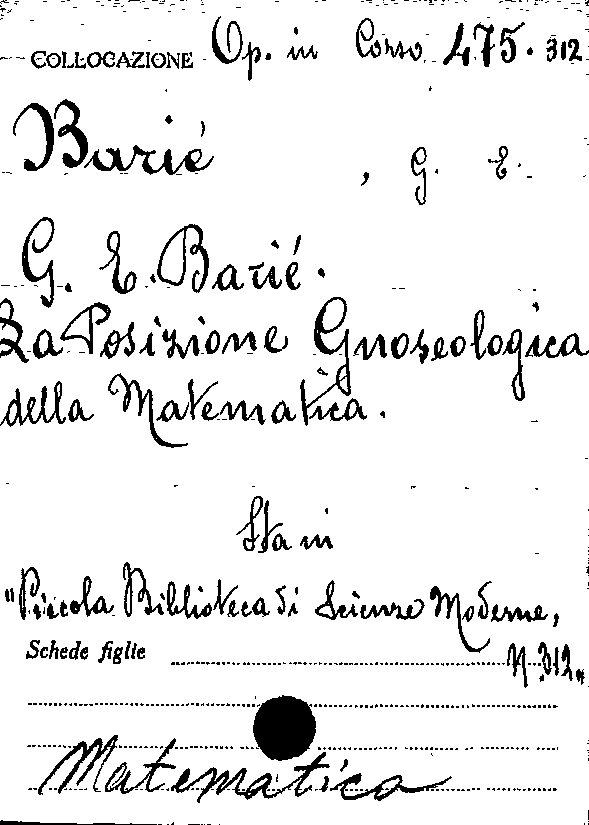 COLLOCAZIONE Op. in Corso 475. 312
Barié , G. E.
G. E. Barié.
La Posizione Gnoseologica
della Matematica.
Sta in
"Piccola Biblioteca di Scienze Moderne,
Schede figlie N. 312"
Matematica